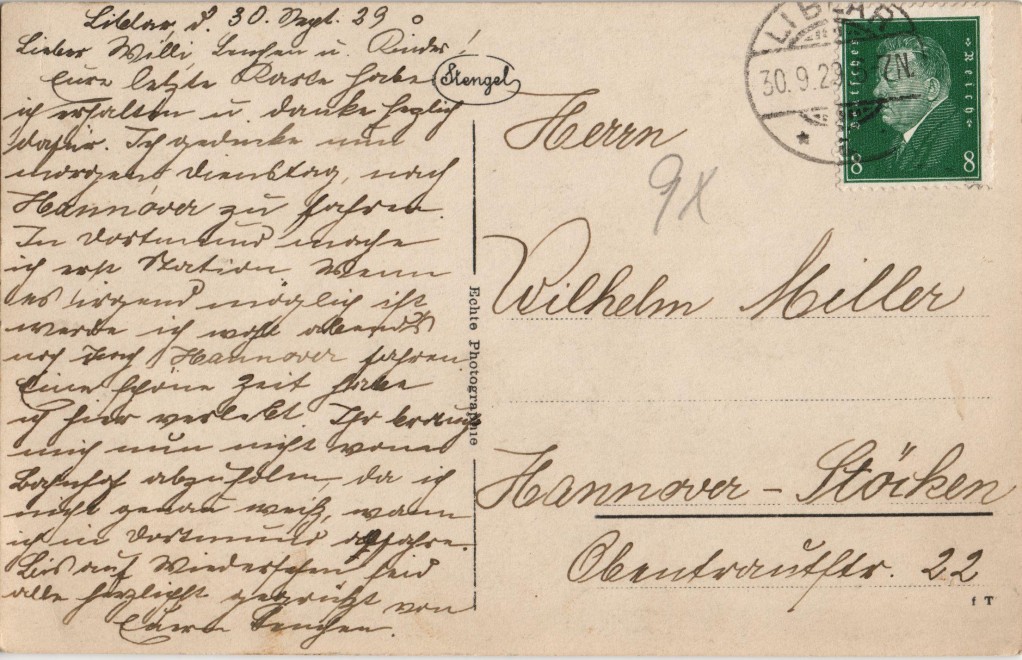 Liblar, d. 30. Sept. 29.
Lieber Willi, Lenchen u. Kinder!
Eure letzte Karte habe
ich erhalten u. danke herzlich
dafür. Ich gedenke nun
morgen, Dienstag, nach
Hannover zu fahren.
In Dortmund mache
ich erst Station. Wenn
es irgend möglich ist
werde ich wohl abends
noch nach Hannover fahren.
Eine schöne Zeit habe
ich hier verlebt. Ihr braucht
mich nun nicht vom
Bahnhof abzuholen, da ich
nicht genau weiß, wann
ich in Dortmund abfahre.
Bis auf Wiedersehen seid
alle herzlichst gegrüßt von
Eurem
Stengel
Echte Photographie
LIBLAR
30.9.29
Deutsches Reich
8 8
9X
Herrn
Wilhelm Miller
Hannover - Stöcken
Obentrautstr. 22
f T